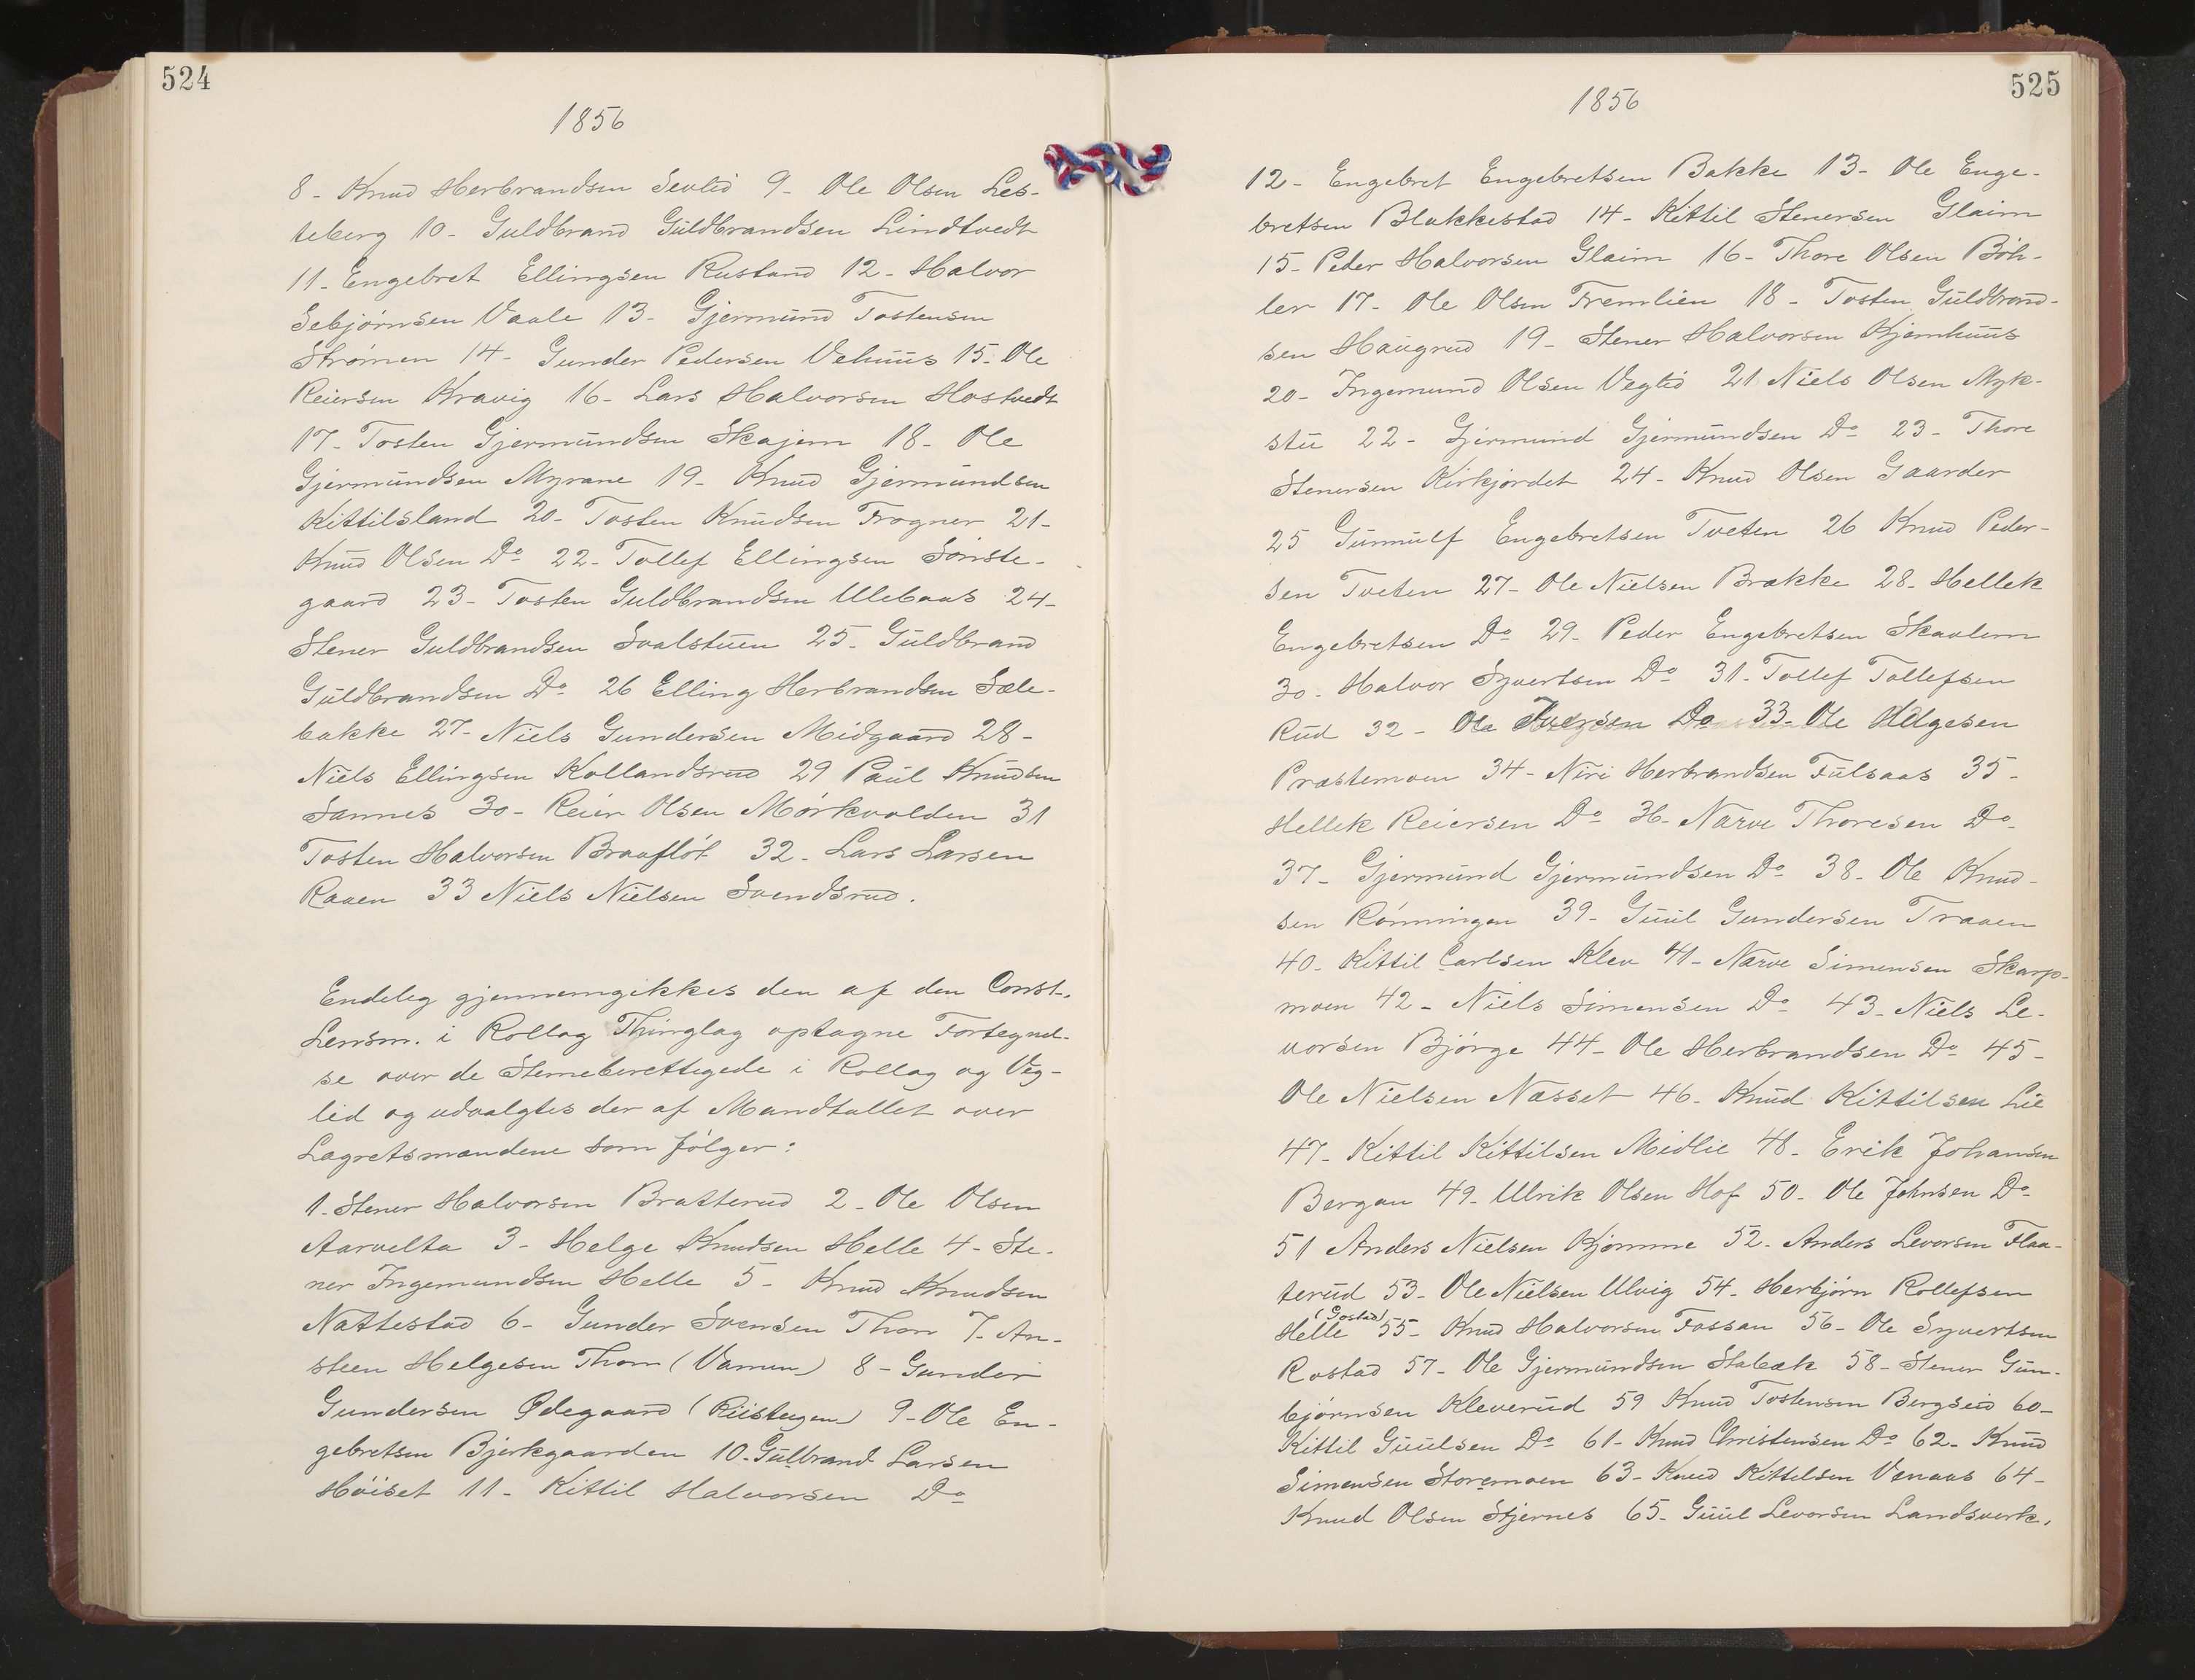 524
1856
8 - Knud Herbrandsen Sevlid 9 - Ole Olsen Les-
teberg 10 - Guldbrand Guldbrandsen Lindtvedt
11 - Engebret Ellingsen Rustand 12 - Halvor
Sebjørnsen Vaale 13 - Gjermund Tostensen
Strømen 14 - Gunder Pedersen Vehuus 15. Ole
Reiersen Kravig 16 - Lars Halvorsen Hostvedt
17 - Tosten Gjermundsen Skajem 18 - Ole
Gjermundsen Myrane 19 - Knud Gjermundsen
Kittilsland 20 - Tosten Knudsen Frogner 21 -
Knud Olsen Do 22 - Tollef Ellingsen Sønste-
gaard 23 - Tosten Guldbrandsen Ulebaas 24 -
Stener Guldbrandsen Svalstuen 25 - Guldbrand
Guldbrandsen Do 26 Elling Herbrandsen Sæle-
bakke 27 - Niels Gundersen Midgaard 28 -
Niels Ellingsen Kollandsrud 29 Paul Knudsen
Sannes 30 - Reier Olsen Mørkvolden 31
Tosten Halvorsen Braafløt 32 - Lars Larsen
Raaen 33 Niels Nielsen Svendsrud.
Endelig gjennemgikkes den af den Const.
Lensm. i Rollag Thinglag optagne Fortegnel-
se over de Stemeberettigede i Rollag og Veg-
lid og udvalgtes der af Mandtallet over
Lagretsmændene som følger:
1. Stener Halvorsen Bratterud 2 - Ole Olsen
Aarvelta 3 - Helge Knudsen Helle 4 - Ste-
ner Ingemundsen Helle 5 - Knud Knudsen
Nattestad 6 - Gunder Svensen Thon 7. An-
steen Helgesen Thon (Vamun) 8 - Gunder
Gundersen Ødegaard (Riisteigen) 9 - Ole En-
gebretsen Bjerkgaarden 10. Gulbrand Larsen
Høiset 11 - Kittil Halvorsen Do
525
1856
12 - Engebret Engebretsen Bakke 13 - Ole Enge-
bretsen Blakkestad 14 - Kittil Stenersen Glaim
15 - Peder Halvorsen Glaim 16 - Thore Olsen Bøh-
ler 17 - Ole Olsen Fremlien 18 - Tosten Guldbrand-
sen Haugrud 19 - Stener Halvorsen Kjemhuus
20 - Ingemund Olsen Veglid 21 Niels Olsen Myk-
stu 22 - Gjermund Gjermundsen Do 23 - Thore
Stenersen Kirkjordet 24 - Knud Olsen Gaarder
25 Gunnulf Engebretsen Tveten 26 Knud Peder-
sen Tveten 27 - Ole Nielsen Brække 28 - Hellek
Engebretsen Do 29 - Peder Engebretsen Skavlem
30 - Halvor Syvertsen Do 31 - Tollef Tollefsen
Rud 32 - Ole Do 33 - Ole Helgesen
Præstemoen 34 - Niri Herbrandsen Fulsaas 35 -
Hellek Reiersen Do 36 - Narve Thoresen Do
37 - Gjermund Gjermundsen Do 38 - Ole Knud-
sen Rønningen 39 - Guul Gundersen Traaen
40 - Kittil Carlsen Klev 41 - Narve Simensen Skarp-
moen 42 - Niels Simensen Do 43 - Niels Le-
vorsen Bjørge 44 - Ole Herbrandsen Do 45 -
Ole Nielsen Næsset 46 - Knud Kittilsen Lie
47 - Kittil Kittilsen Midlie 48 - Erik Johansen
Bergan 49 - Ulrik Olsen Hof 50 - Ole Johnsen Do
51 Anders Nielsen Kjømme 52 - Anders Levorsen Flaa-
terud 53 - Ole Nielsen Ulvig 54 - Herbjørn Rollefsen
(Gostad)
Helle 55 - Knud Halvorsen Fossan 56 - Ole Syvertsen
Rostad 57 - Ole Gjermundsen Stabæk 58 - Stener Gun-
bjørnsen Kleverud 59 Knud Tostensen Bergseid 60 -
Kittil Guulsen Do 61 - Knud Christensen Do 62 - Knud
Simensen Storemoen 63 - Knud Kittelsen Vanaas 64 -
Knud Olsen Stjernes 65 - Guul Levorsen Landsverk.